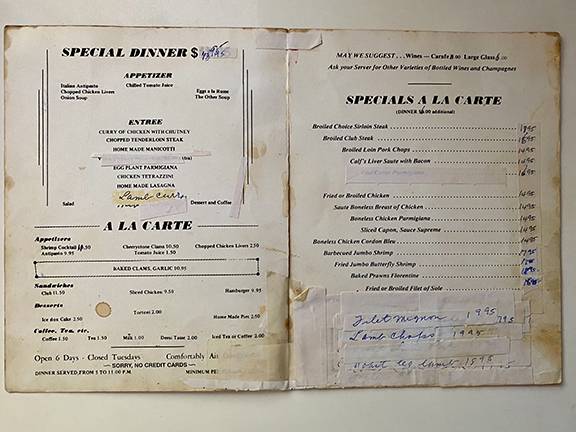 SPECIAL DINNER $
APPETIZER
Italian Antipasto Chilled Tomato Juice Eggs a la Russe
Chopped Chicken Livers The Other Soup
Onion Soup
ENTREE
CURRY OF CHICKEN WITH CHUTNEY
CHOPPED TENDERLOIN STEAK
HOME MADE MANICOTTI
EGG PLANT PARMIGIANA
CHICKEN TETRAZZINI
HOME MADE LASAGNA
Lamb curry
Salad Dessert and Coffee
A LA CARTE
Appetizers
Shrimp Cocktail Cherrystone Clams 10.50 Chopped Chicken Livers 2.50
Antipasto 9.95 Tomato Juice 1.50
BAKED CLAMS, GARLIC 10.95
Sandwiches
Club 11.50 Sliced Chicken 9.50 Hamburger 9.95
Desserts
Tortoni 2.00
Ice Box Cake 2.50 Home Made Pies 2.50
Coffee, Tea, etc.
Coffee 1.50 Tea 1.50 Milk 1.00 Demi Tasse 2.00 Iced Tea or Coffee 2.00
Open 6 Days - Closed Tuesdays Comfortably Air
SORRY, NO CREDIT CARDS
DINNER SERVED, FROM 5 TO 11:00 P.M. MINIMUM PE
MAY WE SUGGEST . . . Wines — Carafe 8.00 Large Glass
Ask your Server for Other Varieties of Bottled Wines and Champagnes
SPECIALS A LA CARTE
(DINNER additional)
Broiled Choice Sirloin Steak 1895
Broiled Club Steak 1895
Broiled Loin Pork Chops 1495
Calf's Liver Saute with Bacon 1495
Veal Cutlet Parmigiana 1695
Fried or Broiled Chicken 1495
Saute Boneless Breast of Chicken 1495
Boneless Chicken Parmigiana 1495
Sliced Capon, Sauce Supreme 1495
Boneless Chicken Cordon Bleu 1495
Barbecued Jumbo Shrimp 1795
Fried Jumbo Butterfly Shrimp 1795
Baked Prawns Florentine 1895
Fried or Broiled Filet of Sole
Filet Mignon 1995
Lamb Chops 1995
Roast leg lamb 1595